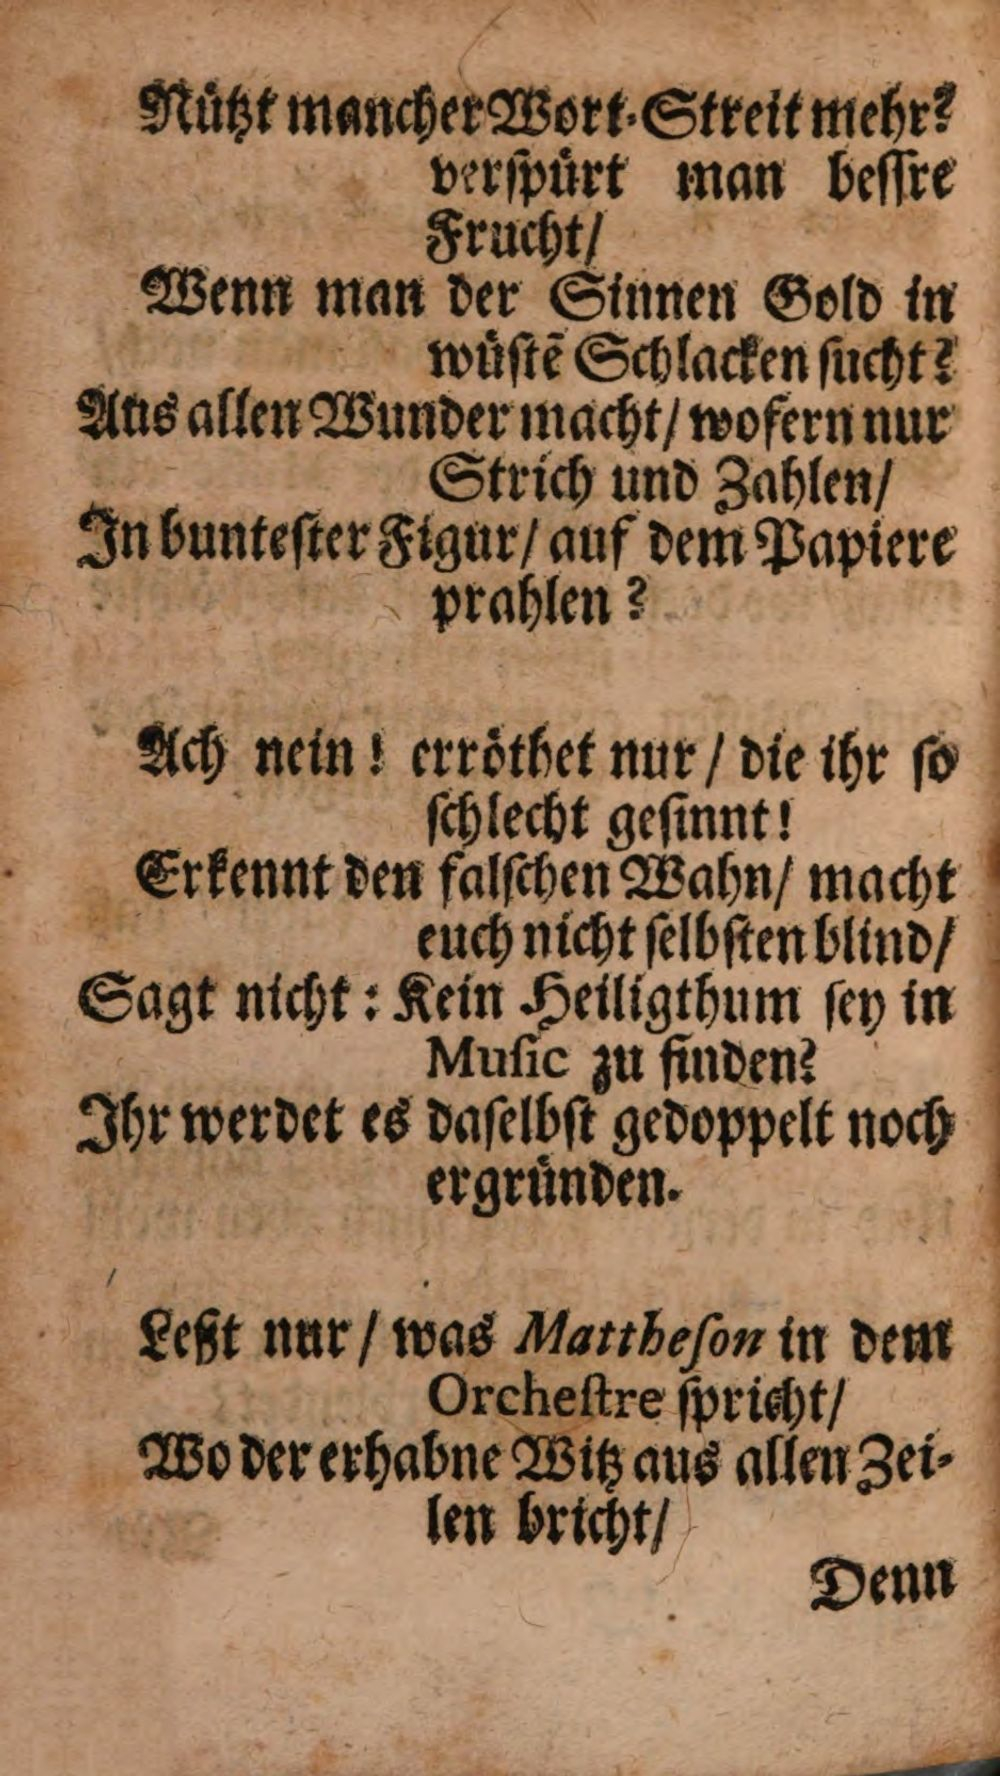 Nützt mancher Wort-Streit mehr?
verſpürt man beſſre
Frucht/
Wenn man der Sinnen Gold in
wüſtē Schlacken ſucht?
Aus allen Wunder macht/ wofern nur
Strich und Zahlen/
In bunteſter Figur/ auf dem Papiere
prahlen?
Ach nein! erröthet nur/ die ihr ſo
ſchlecht geſinnt!
Erkennt den falſchen Wahn/ macht
euch nicht ſelbſten blind/
Sagt nicht: Kein Heiligthum ſey in
Muſic zu finden?
Ihr werdet es daſelbſt gedoppelt noch
ergründen.
Leßt nur/ was Mattheſon in dem
Orcheſtre ſpricht/
Wo der erhabne Witz aus allen Zei-
len bricht/
Denn